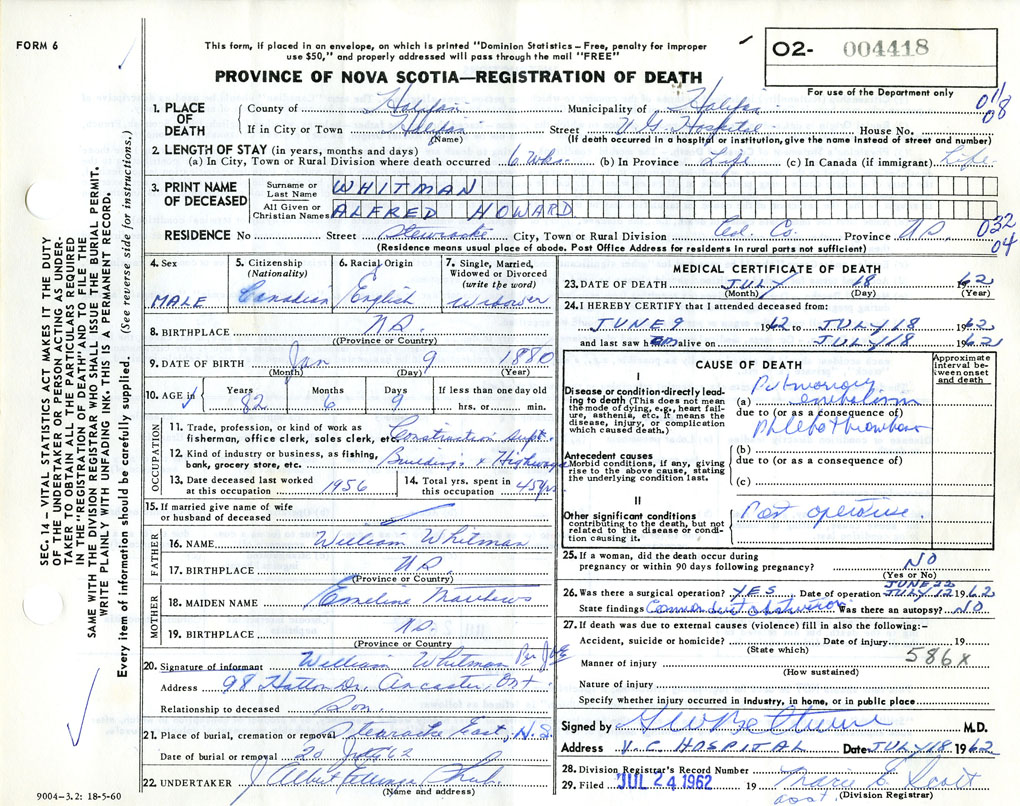 FORM 6
This form, if placed in an envelope, on which is printed "Dominion Statistics – Free, penalty for improper
use $50," and properly addressed will pass through the mail "FREE"
02- 004418
For use of the Department only
PROVINCE OF NOVA SCOTIA—REGISTRATION OF DEATH
1. PLACE OF DEATH
County of Halifax Municipality of Halifax
If in City or Town Halifax Street V G Hospital House No.
(Name) (If death occurred in a hospital or institution, give the name instead of street and number)
018
08
2. LENGTH OF STAY (in years, months and days)
(a) In City, Town or Rural Division where death occurred 6 Wks. (b) In Province Life (c) In Canada (if immigrant) Life
3. PRINT NAME OF DECEASED
Surname or Last Name WHITMAN
All Given or Christian Names ALFRED HOWARD
RESIDENCE No Street Stewiacke City, Town or Rural Division Col. Co. Province N.S.
(Residence means usual place of abode. Post Office Address for residents in rural parts not sufficient)
032
04
4. Sex MALE
5. Citizenship (Nationality) Canadian
6. Racial Origin English
7. Single, Married, Widowed or Divorced (write the word) Widower
8. BIRTHPLACE N.S.
(Province or Country)
9. DATE OF BIRTH Jan 9 1880
(Month) (Day) (Year)
10. AGE in Years 82 Months 6 Days 9 If less than one day old hrs. or min.
OCCUPATION
11. Trade, profession, or kind of work as
fisherman, office clerk, sales clerk, etc. Construction Supt.
12. Kind of industry or business, as fishing,
bank, grocery store, etc. Buildings & Highways
13. Date deceased last worked at this occupation 1956
14. Total yrs. spent in this occupation 45 yrs
15. If married give name of wife
or husband of deceased
FATHER
16. NAME William Whitman
17. BIRTHPLACE N.S.
(Province or Country)
MOTHER
18. MAIDEN NAME Emeline Matthews
19. BIRTHPLACE N.S.
(Province or Country)
20. Signature of informant William Whitman Per
Address 98 Hatton Dr., Ancaster, Ont.
Relationship to deceased Son.
21. Place of burial, cremation or removal Stewiacke East, N.S.
Date of burial or removal 20 July 62
22. UNDERTAKER J Albert
(Name and address)
9004-3.2: 18-5-60
MEDICAL CERTIFICATE OF DEATH
23. DATE OF DEATH JULY 18 1962
(Month) (Day) (Year)
24. I HEREBY CERTIFY that I attended deceased from:
JUNE 9 1962 to JULY 18 1962
and last saw h alive on JULY 18 1962
CAUSE OF DEATH
Approximate interval between onset and death
I
Disease or condition directly leading to death (This does not mean
the mode of dying, e.g., heart failure, asthenia, etc. It means the
disease, injury, or complication which caused death.)
(a) Pulmonary embolism
due to (or as a consequence of)
Phlebothrombosis
Antecedent causes
Morbid conditions, if any, giving rise to the above cause, stating the underlying condition last.
(b)
due to (or as a consequence of)
(c)
II
Other significant conditions
contributing to the death, but not related to the disease or condition causing it.
Post operative.
25. If a woman, did the death occur during
pregnancy or within 90 days following pregnancy? NO
(Yes or No)
JUNE 22
26. Was there a surgical operation? YES Date of operation JULY 12 1962
State findings Common duct Was there an autopsy? NO
27. If death was due to external causes (violence) fill in also the following:-
Accident, suicide or homicide? Date of injury 19
(State which)
586x
Manner of injury
(How sustained)
Nature of injury
Specify whether injury occurred in industry, in home, or in public place
Signed by M.D.
Address V.G. HOSPITAL Date JULY 18 1962
28. Division Registrar's Record Number
29. Filed JUL 24 1962 19
(Division Registrar)
asst.
SEC. 14 – VITAL STATISTICS ACT MAKES IT THE DUTY
OF THE UNDERTAKER OR PERSON ACTING AS UNDERTAKER TO OBTAIN ALL THE PARTICULARS REQUIRED
IN THE "REGISTRATION OF DEATH" AND TO FILE THE
SAME WITH THE DIVISION REGISTRAR WHO SHALL ISSUE THE BURIAL PERMIT.
WRITE PLAINLY WITH UNFADING INK. THIS IS A PERMANENT RECORD.
Every item of information should be carefully supplied. (See reverse side for instructions.)